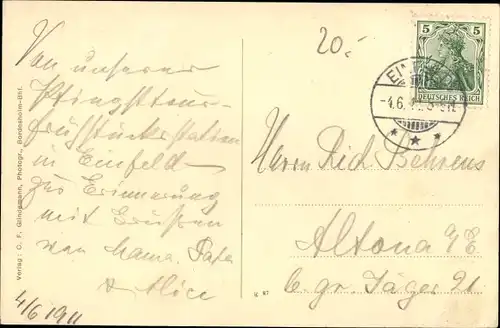 Von unserer
Pfingsttour-
frühstückstation
in Einfeld
zur Erinnerung
mit Grüssen
von Mama, Papa
& Alice
4/6 1911
Verlag: C. F. Glindemann, Photogr., Bordesholm-Bhf.
K 67
20.-
5 5
DEUTSCHES REICH
-4.6.
Herrn Rid. Behrens
Altona a/E
b. gr. Jäger 21